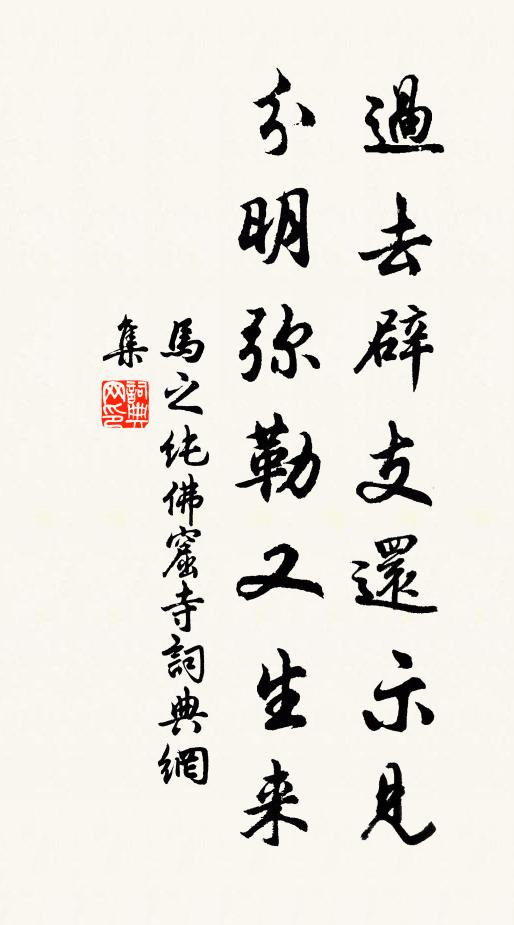 過去辟支還示見
分明弥勒又生来
馬之純佛窟寺詞典網
集
詞典
网印